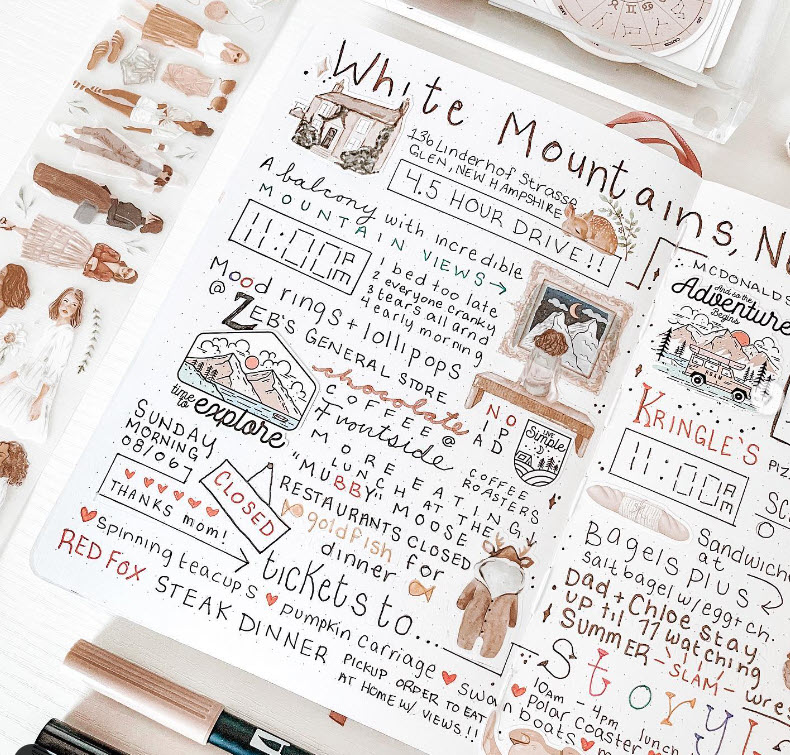 White Mountains, N
136 Linderhof Strasse
GLEN, NEW HAMPSHIRE
4.5 HOUR DRIVE!!
A balcony with incredible
MOUNTAIN VIEWS →
11:00 AM PM
1 bed too late
2 everyone cranky
3 tears all arnd
4 early morning
Mood rings + lollipops
@ ZEB'S GENERAL STORE
time to explore
chocolate
COFFEE @
Frontside
COFFEE ROASTERS
NO
IPAD
LIVE Simple
SUNDAY
MORNING
08/06
THANKS mom!
CLOSED
MORE EATING,
LUNCH AT THE
"MUBBY" MOOSE
RESTAURANTS CLOSED
goldfish for
dinner
tickets to...
♥ spinning teacups ♥ pumpkin carriage ♥ swan boats ♥
RED FOX STEAK DINNER
PICKUP ORDER TO EAT
AT HOME W/ VIEWS!!
MCDONALDS
And so the
Adventure
Begins
KRINGLE'S
PIZ
11:00 AM PM
SC
Sandwich
at
Bagels PLUS
salt bagel w/ egg + ch.
Dad + Chloe stay
up til 11 watching
SUMMER-SLAM-wres
Storyl
10am - 4pm lunch
Polar coaster